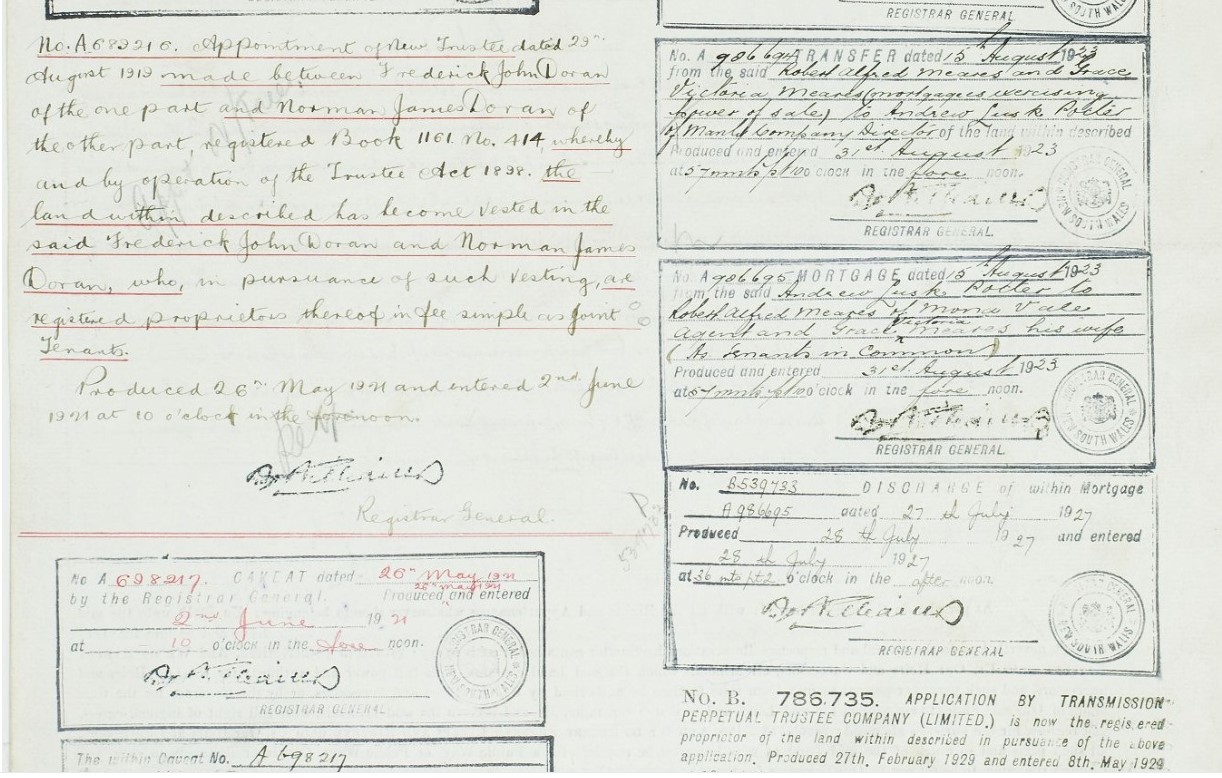 REGISTRAR GENERAL
of New Trustee dated
August made Frederick John Doran
of the one part and Norman James Doran of
the other part, Registered Book 1161. No. 414, whereby
and by operation of the Trustee Act 1898. the
land within described has become vested in the
said Frederick John Doran and Norman James
Doran, who in pursuance of such vesting, are
registered proprietors thereof in fee simple as joint
Tenants.
Produced 26th May 1921 and entered 2nd June
1921 at 10 o'clock in the noon.
Registrar General.
No A 698217 CAVEAT dated 26th May 1921
by the Registrar General. Produced and entered
2nd June 1921
at 10 o'clock in the fore noon.
REGISTRAR GENERAL
the within Caveat No. A 698217
REGISTRAR GENERAL
No. A 986694 TRANSFER dated 15 August 1923
from the said Robert Alfred Meares and Grace
Victoria Meares (mortgagees exercising
power of sale) to Andrew Lusk Potter
of Manly Company Director of the land within described
Produced and entered 31st August 1923
at 57 mnts pt 10 o'clock in the fore noon.
REGISTRAR GENERAL.
REGISTRAR GENERAL NEW SOUTH WALES
No. A 986695 MORTGAGE dated 15 August 1923
from the said Andrew Lusk Potter to
Robert Alfred Meares of Mona Vale
Agent and Grace Victoria Meares his wife
(As Tenants in Common)
Produced and entered 31st August 1923
at 57 mnts pt 10 o'clock in the fore noon.
REGISTRAR GENERAL.
REGISTRAR GENERAL NEW SOUTH WALES
No. B539733 DISCHARGE of within Mortgage
A986695 dated 27th July 1927
Produced 28th July 1927 and entered
28th July 1927
at 36 mts pt 2 o'clock in the after noon.
REGISTRAR GENERAL
No. B. 786.735. APPLICATION BY TRANSMISSION
PERPETUAL TRUSTEE COMPANY (LIMITED,) is now the registered
proprietor of the land within described in pursuance of the above
application, Produced February, 1929 and entered 8th, May 1929